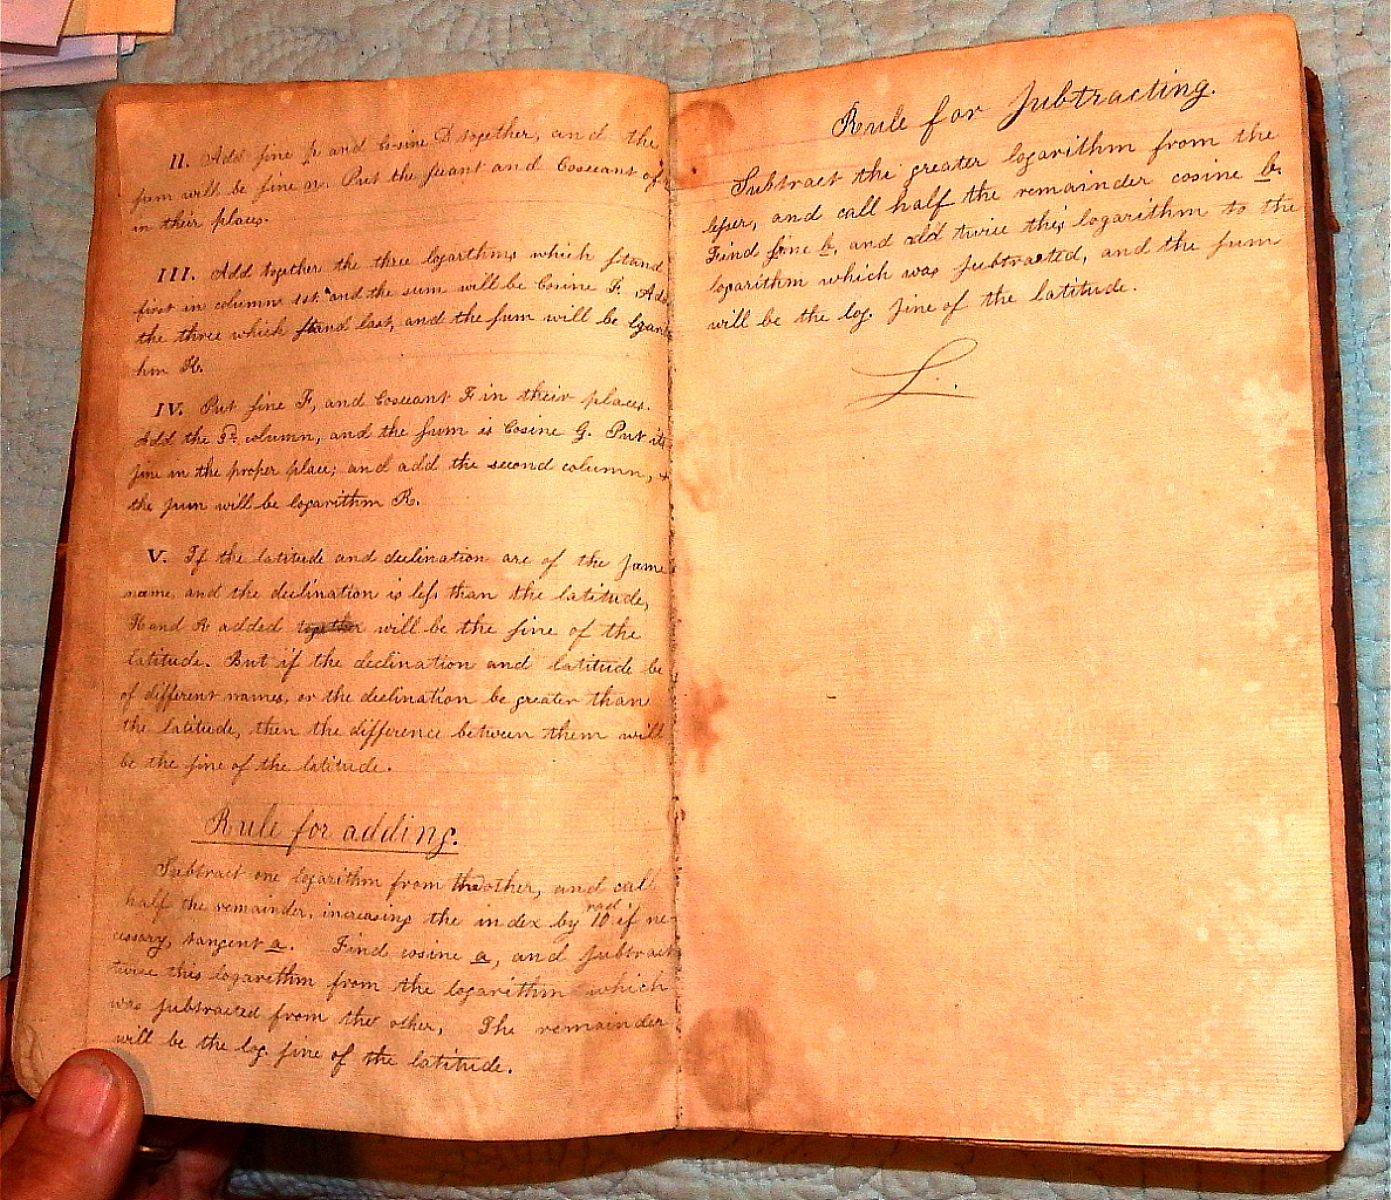 II. Add sine E and Co-sine D together, and the
sum will be sine n. Put the secant and Cosecant of
in their places.
III. Add together the three logarithms which stand
first in column 1st. and the sum will be Cosine F. Add
the three which stand last, and the sum will be Logarit
hm H.
IV. Put sine F, and Cosecant F in their places.
Add the 3d. column, and the sum is Cosine G. Put its
sine in the proper place; and add the second column, &
the sum will be logarithm R.
V. If the latitude and declination are of the same
name, and the declination is less than the latitude,
H and R added will be the sine of the
latitude. But if the declination and latitude be
of different names, or the declination be greater than
the latitude, then the difference between them will
be the sine of the latitude.
Rule for adding.
Subtract one logarithm from the other, and call
half the remainder, increasing the index by 10 rad. if ne-
cessary, tangent a. Find cosine a, and subtract
twice this logarithm from the logarithm which
was subtracted from the other, The remainder
will be the log. sine of the latitude.
Rule for Subtracting.
Subtract the greater logarithm from the
lesser, and call half the remainder cosine b.
Find sine b, and add twice this logarithm to the
logarithm which was subtracted, and the sum
will be the log. sine of the latitude.
L..